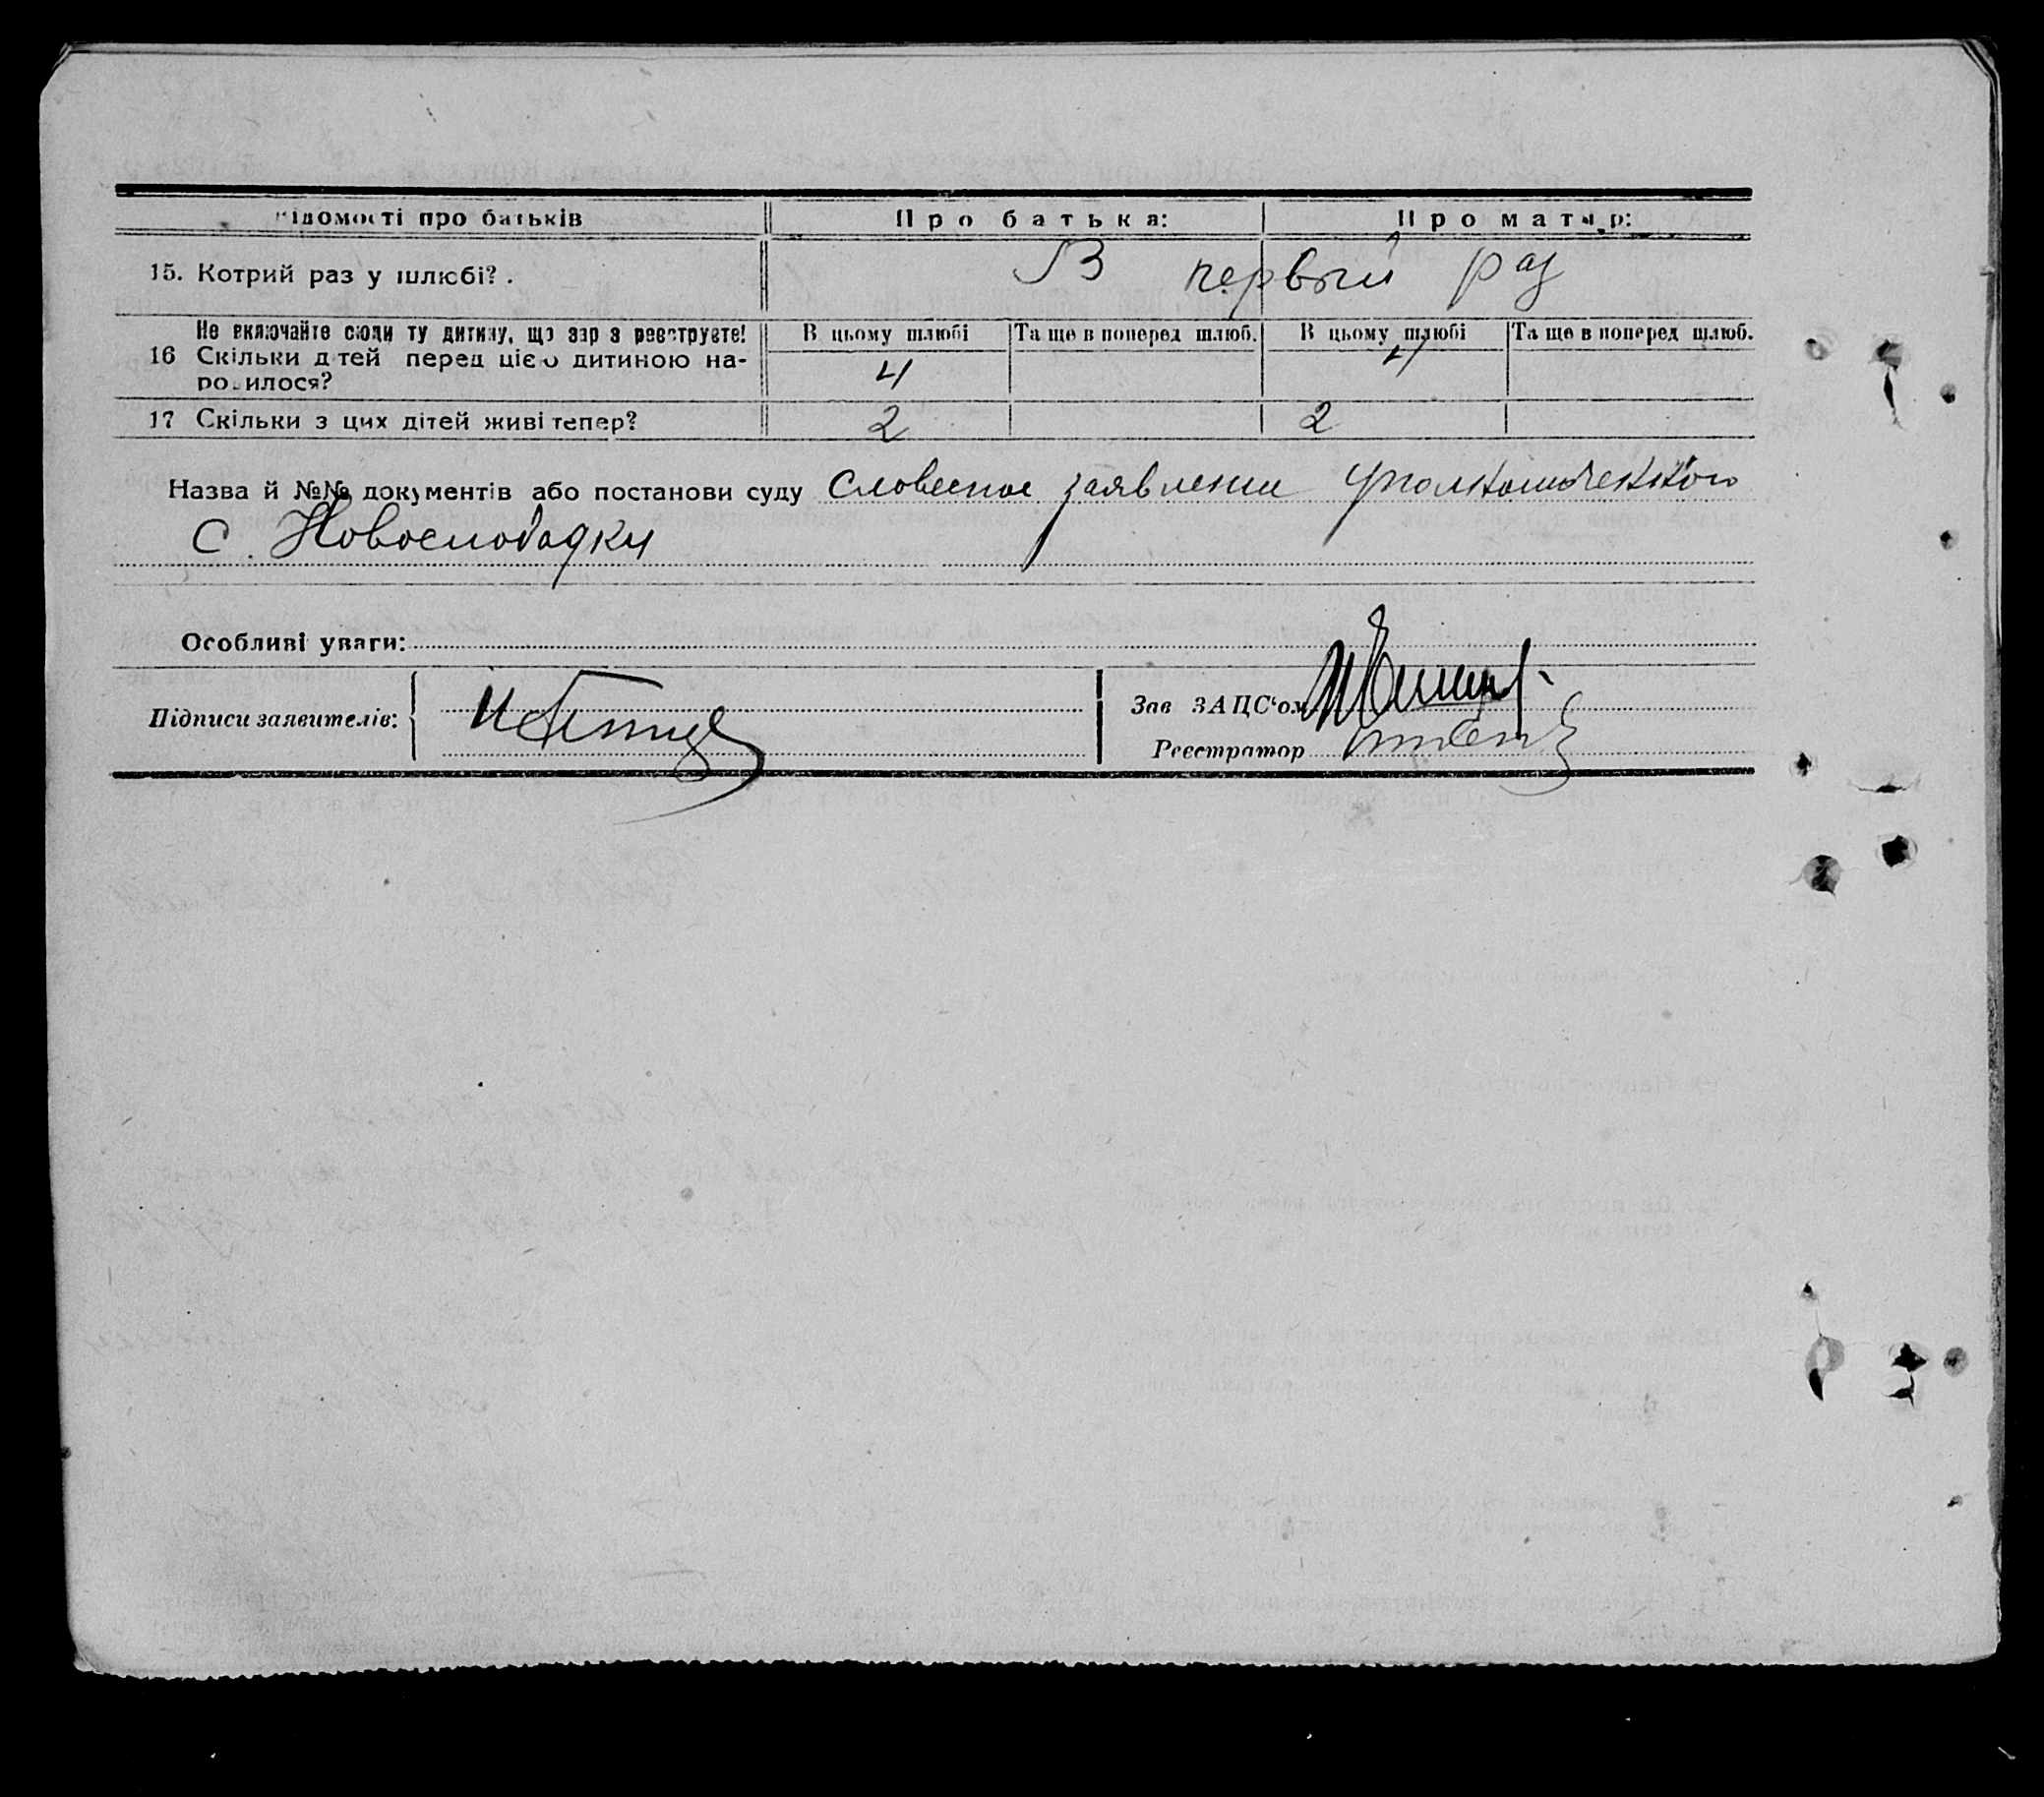 Відомості про батьків Про батька: Про матір:
15. Котрий раз у шлюбі?. В первый раз
Не включайте сюди ту дитину, що зараз реєструєте! В цьому шлюбі Та ще в поперед шлюб. В цьому шлюбі Та ще в поперед шлюб.
16 Скільки дітей перед цією дитиною на-
родилося? 4 4
17 Скільки з цих дітей живі тепер? 2 2
Назва й №№ документів або постанови суду Словесное заявление
С. Новослободки
Особливі уваги:
Підписи заявителів:
Зав ЗАЦС'ом
Реєстратор